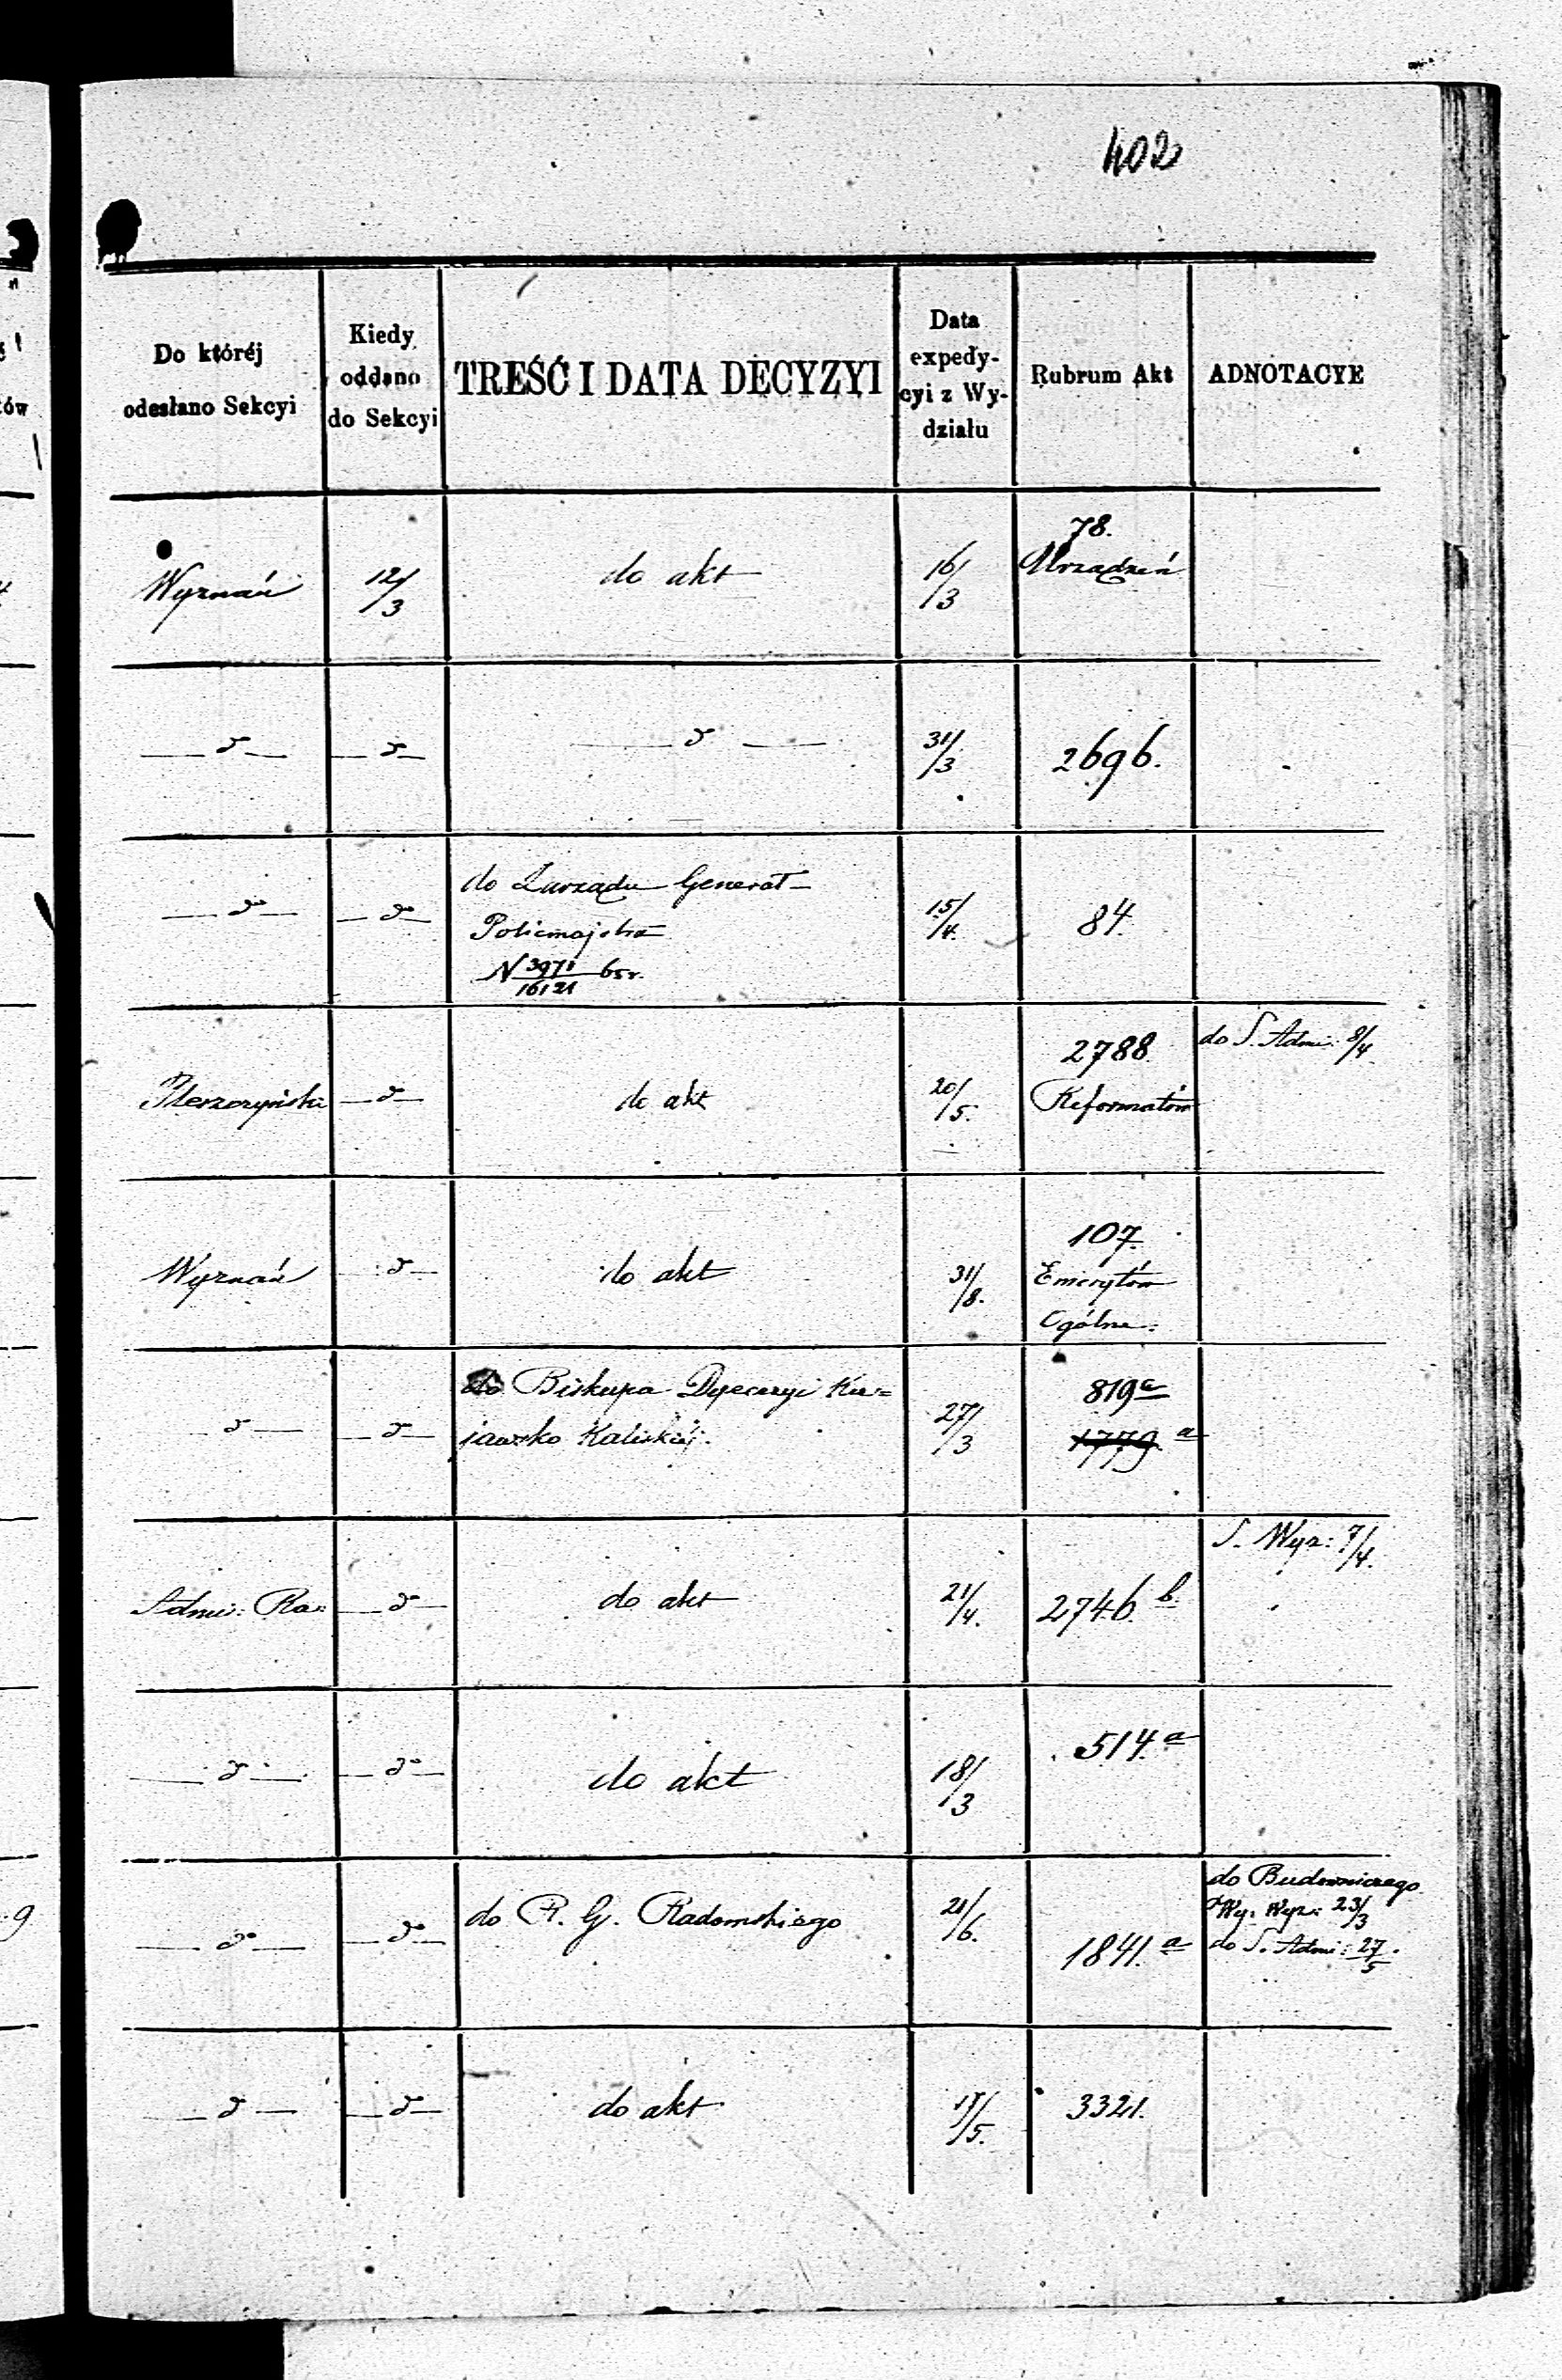 402
Do któréj
odesłano Sekcyi
Kiedy
oddano
do Sekcyi
TREŚĆ I DATA DECYZYI
Data
expedy-
cyi z Wy-
działu
Rubrum Akt
ADNOTACYE
78.
Wyznań 12/3 do akt 16/3 Urządzeń
— d — — d — — d — 31/3 2696.
do Zarządu Generał-
— do — — do — Policmajstra 15/4. 84.
N 3971/16121 65r.
2788. do S. Adm: 8/4.
— d — do akt 20/5. Reformatów
107.
Wyznań — d — do akt 31/8. Emerytów
Ogólne.
do Biskupa Dyecezyi Ku= 819a
— d — — d — jawsko Kaliskiéj. 27/3 1779. a
S. Wyz: 7/4.
Adm: Ra: — d — do akt 21/4. 2746. b.
514. a
— d — — do — do akt 18/3
do Budowniczego
do R. G. Radomskiego 21/6. Wy: Wyz: 23/3
— do — — do — 1841. a do S. Adm: 27/5.
— d — — d — do akt 17/5. 3321.